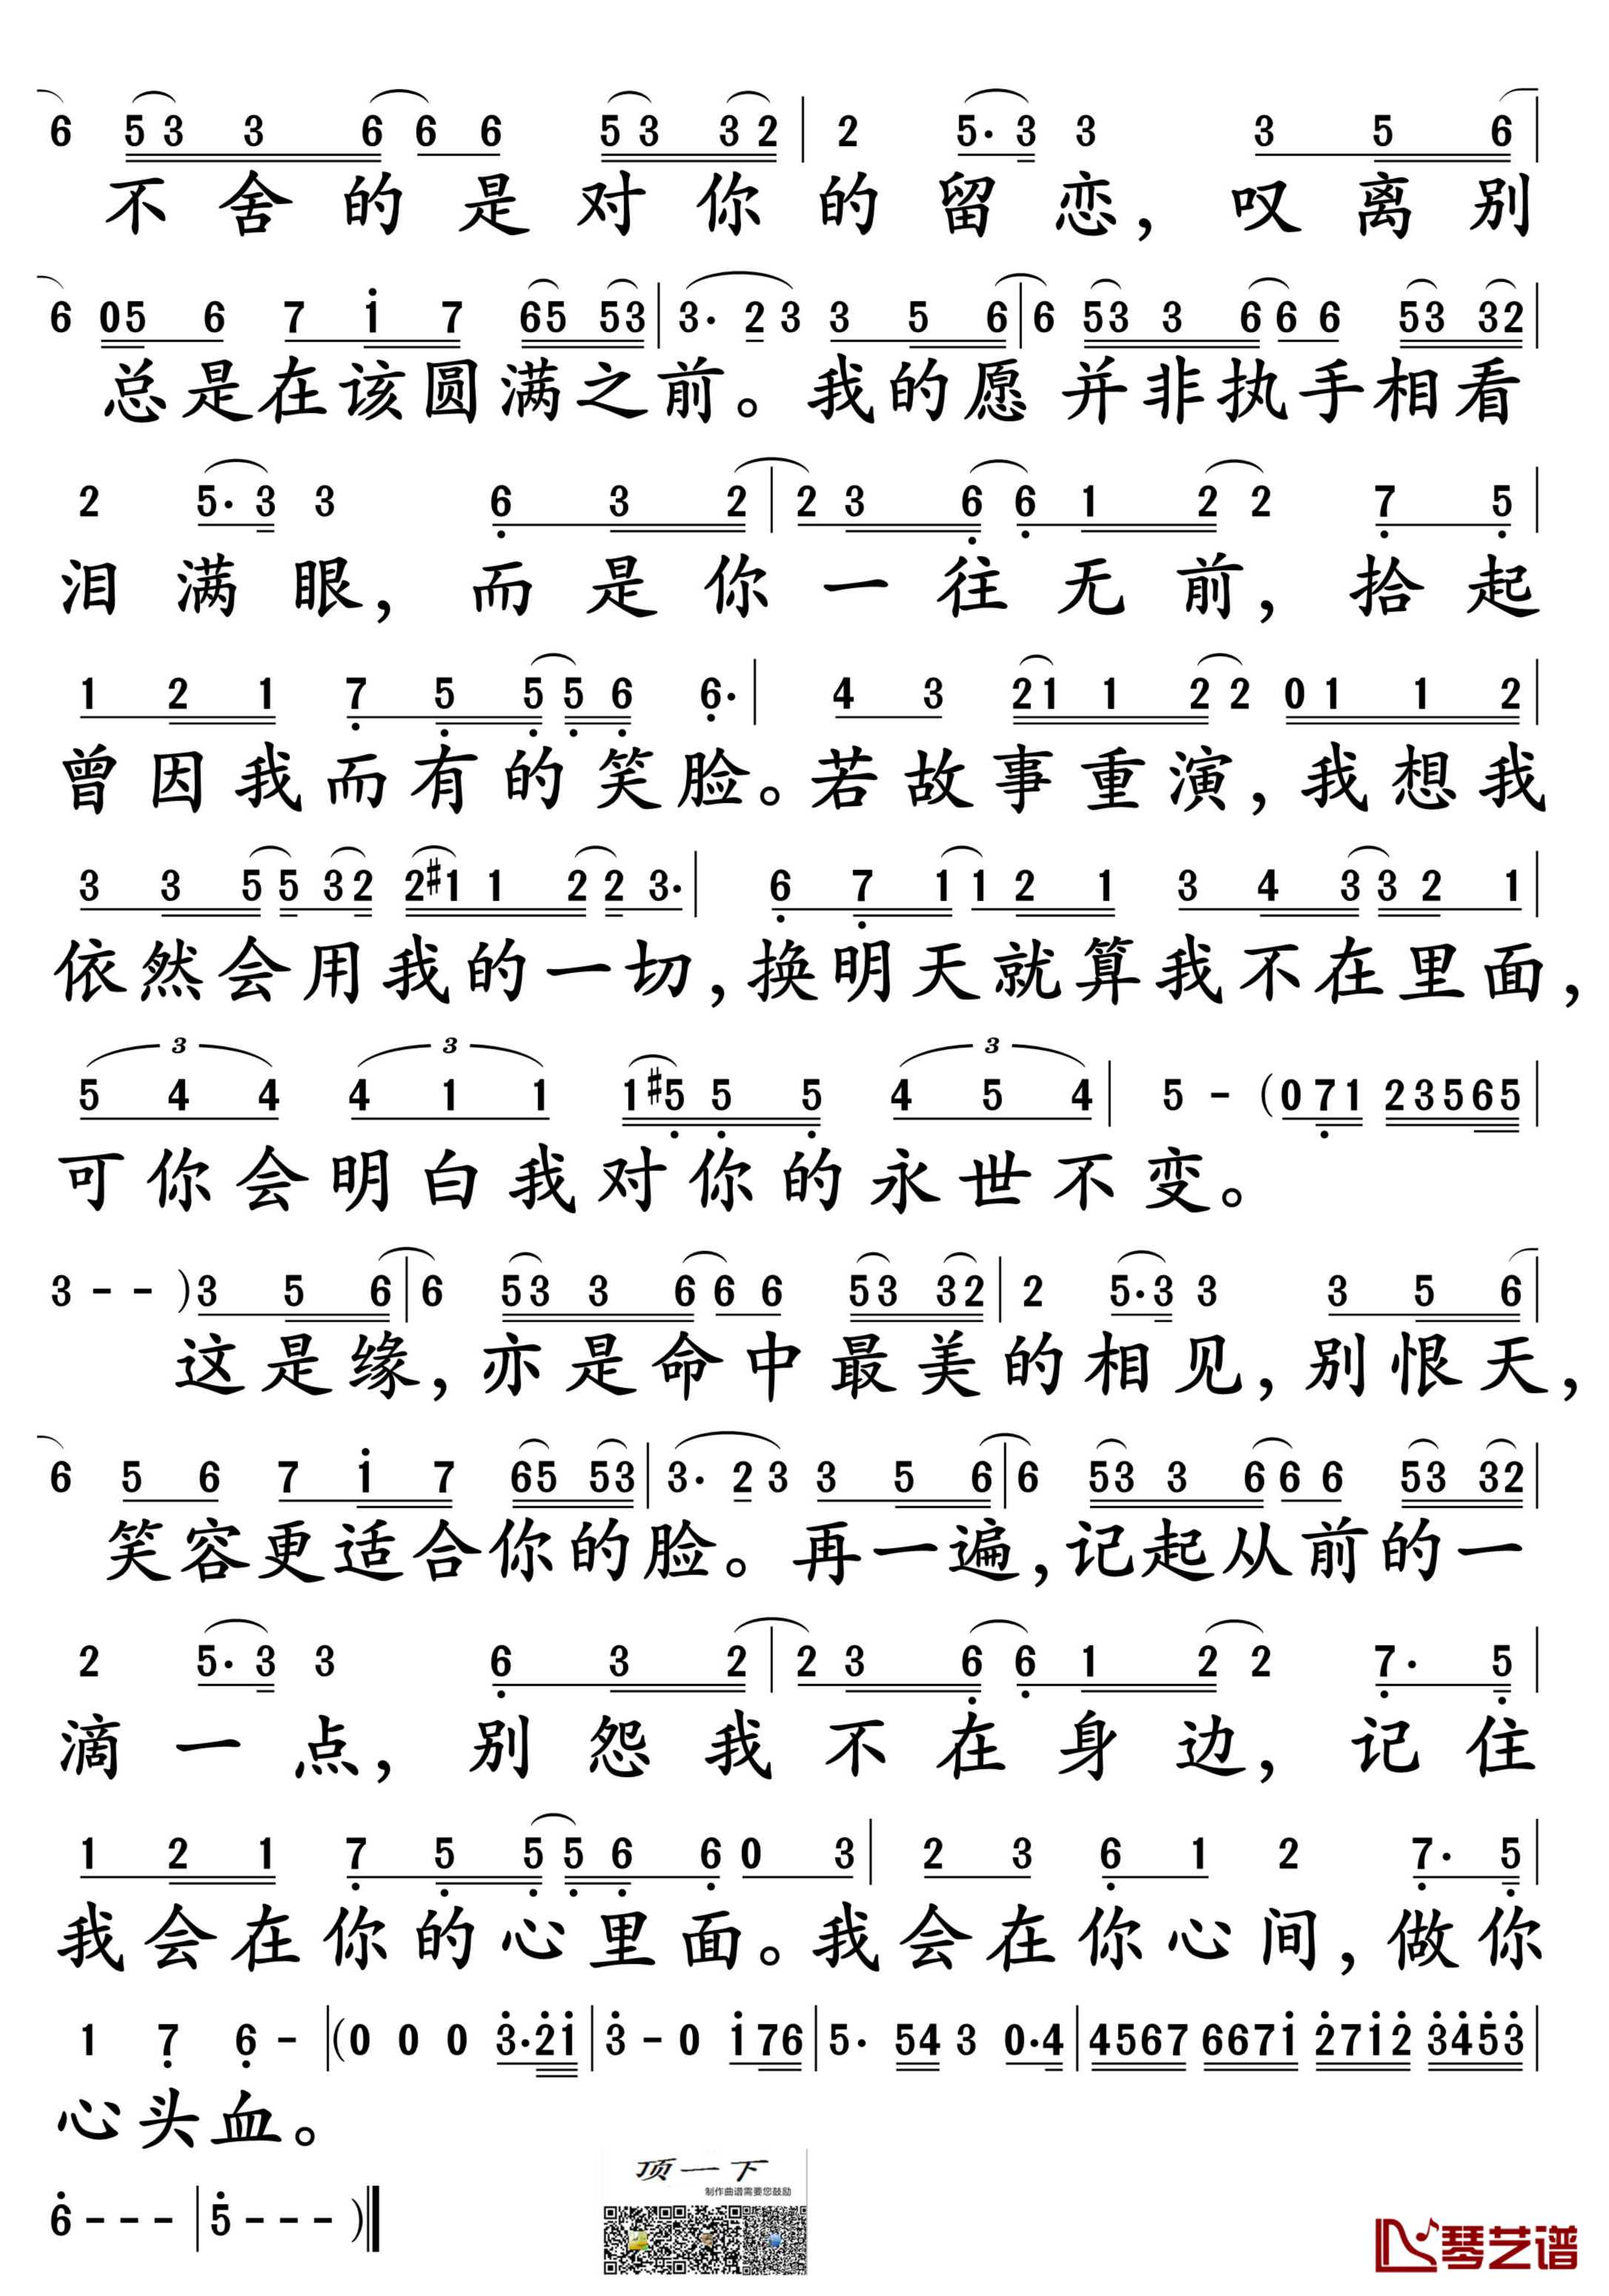 6 53 3 6 6 6 53 32 | 2 5· 3 3 3 5 6 |
不舍的是对你的留恋，叹离别
6 05 6 7 1 7 65 53 | 3· 2 3 3 5 6 | 6 53 3 6 6 6 53 32 |
总是在该圆满之前。我的愿并非执手相看
2 5· 3 3 6 3 2 | 2 3 6 6 1 2 2 7 5 |
泪满眼，而是你一往无前，拾起
1 2 1 7 5 5 5 6 6· | 4 3 21 1 2 2 0 1 1 2 |
曾因我而有的笑脸。若故事重演，我想我
3 3 5 5 32 2 #1 1 2 2 3· | 6 7 1 1 2 1 3 4 3 3 2 1 |
依然会用我的一切，换明天就算我不在里面，
3 3 3
5 4 4 4 1 1 1 #5 5 5 4 5 4 | 5 - (0 7 1 2 3 5 6 5 |
可你会明白我对你的永世不变。
3 - - ) 3 5 6 | 6 53 3 6 6 6 53 32 | 2 5· 3 3 3 5 6 |
这是缘，亦是命中最美的相见，别恨天，
6 5 6 7 1 7 65 53 | 3· 2 3 3 5 6 | 6 53 3 6 6 6 53 32 |
笑容更适合你的脸。再一遍，记起从前的一
2 5· 3 3 6 3 2 | 2 3 6 6 1 2 2 7· 5 |
滴一点，别怨我不在身边，记住
1 2 1 7 5 5 5 6 6 0 3 | 2 3 6 1 2 7· 5 |
我会在你的心里面。我会在你心间，做你
1 7 6 - | (0 0 0 3· 2 1 | 3 - 0 1 7 6 | 5· 5 4 3 0· 4 | 4567 6671 2712 3453 |
心头血。
顶一下
制作曲谱需要您鼓励
6 - - - | 5 - - - ) ||
琴艺谱